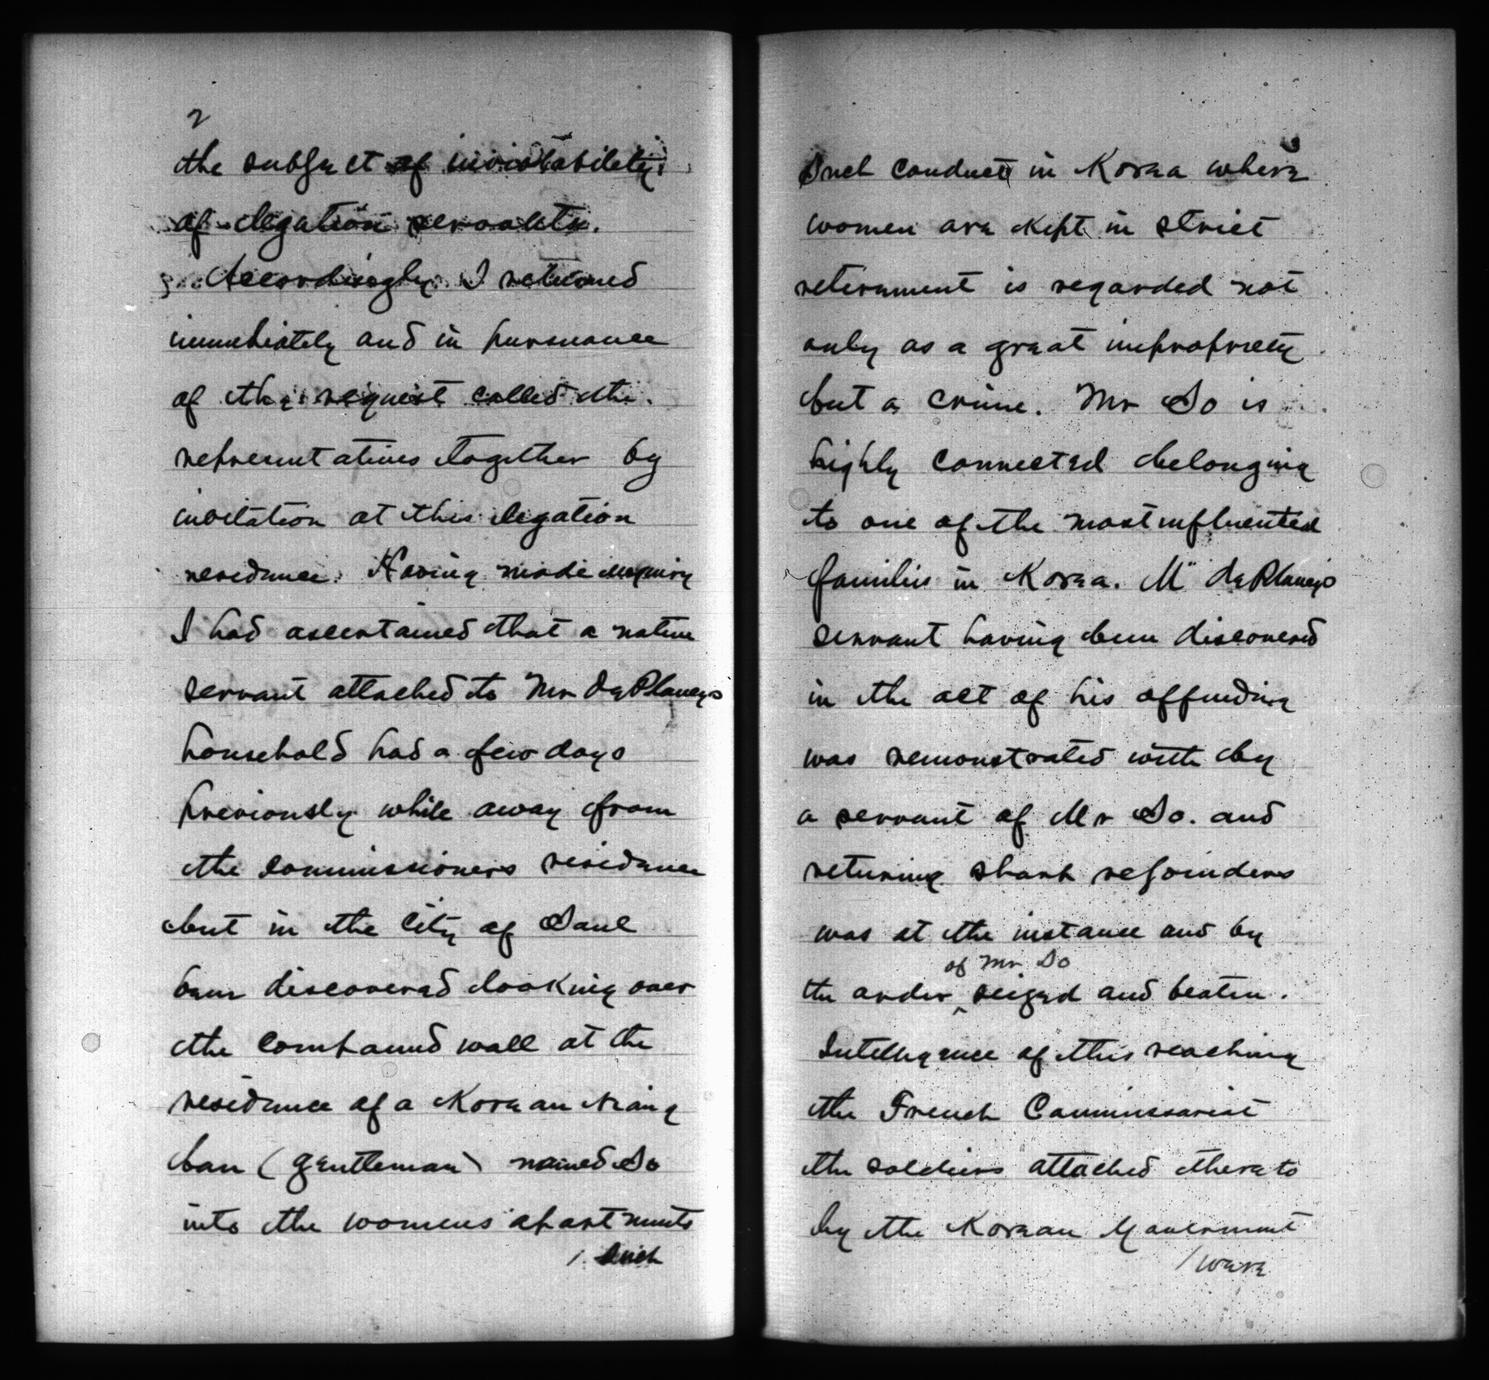 2
the subject of inviolability
of legation servants.
Accordingly I returned
immediately and in pursuance
of the request called the
representatives together by
invitation at this legation
residence. Having made inquiry
I had ascertained that a native
servant attached to Mr de Plancys
household had a few days
previously while away from
the commissioners residence
but in the City of Saul
been discovered looking over
the compound wall at the
residence of a Korean Niang
ban (gentleman) named So
into the womens apartments
/ Such
3
Such conduct in Korea where
women are kept in strict
retirement is regarded not
only as a great impropriety
but a crime. Mr So is
highly connected belonging
to one of the most influential
families in Korea. Mr de Plancys
servant having been discovered
in the act of his offending
was remonstrated with by
a servant of Mr So. and
returning sharp rejoinders
was at the instance and by
of Mr So
the order ^ seized and beaten.
Intelligence of this reaching
the French Commissariat
the soldiers attached thereto
by the Korean Government
/ were